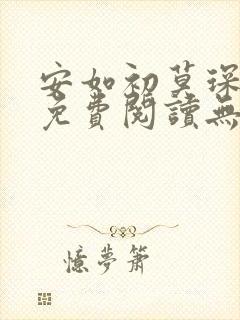 安如初莫琛
免費閱讀無
憶夢簫